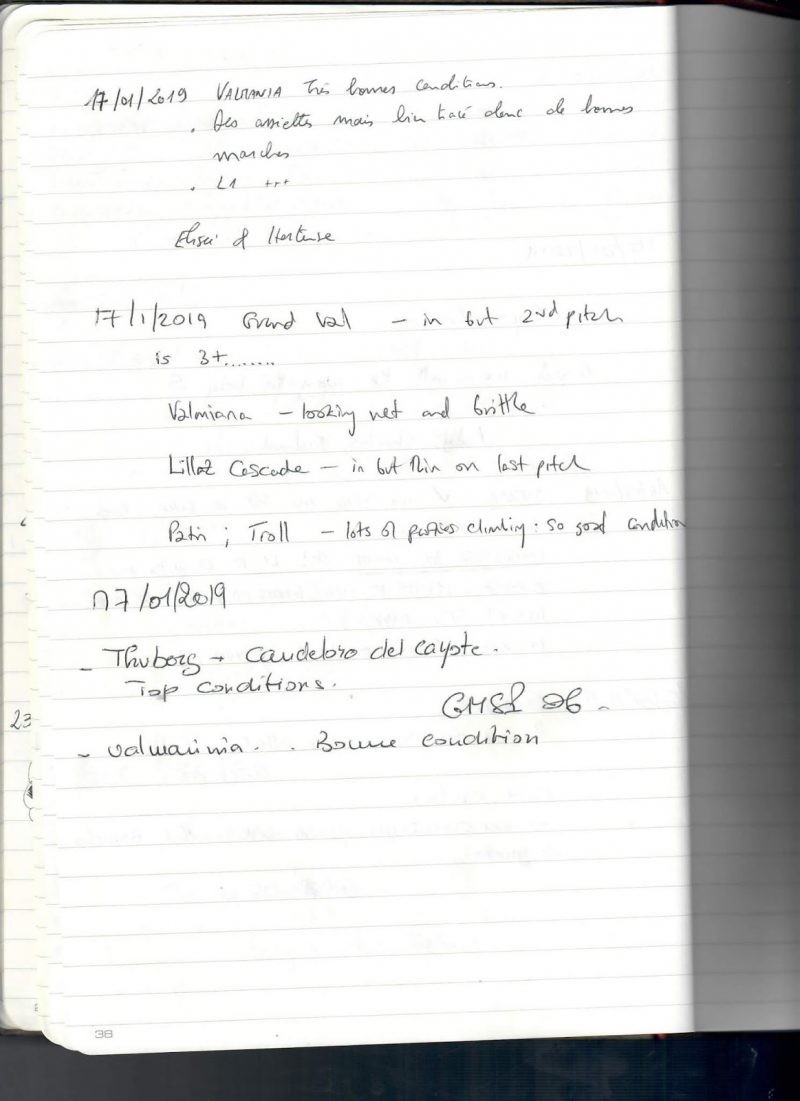 17/01/2019 VALMIANIA Très bonnes conditions.
. Des assiettes mais bien tracé donc de bonnes
marches
. L1 +++
& Hortense
17/1/2019 Grand Val – in but 2nd pitch
is 3+........
Valmiana – looking wet and brittle
Lillaz Cascade – in but thin on last pitch
Patri ; Troll – lots of parties climbing : so good condition
17/01/2019
- Thuborg → Candelobro del cayote.
Top conditions.
GMSP 96 -
23
- valmainia . . Bonne condition
38